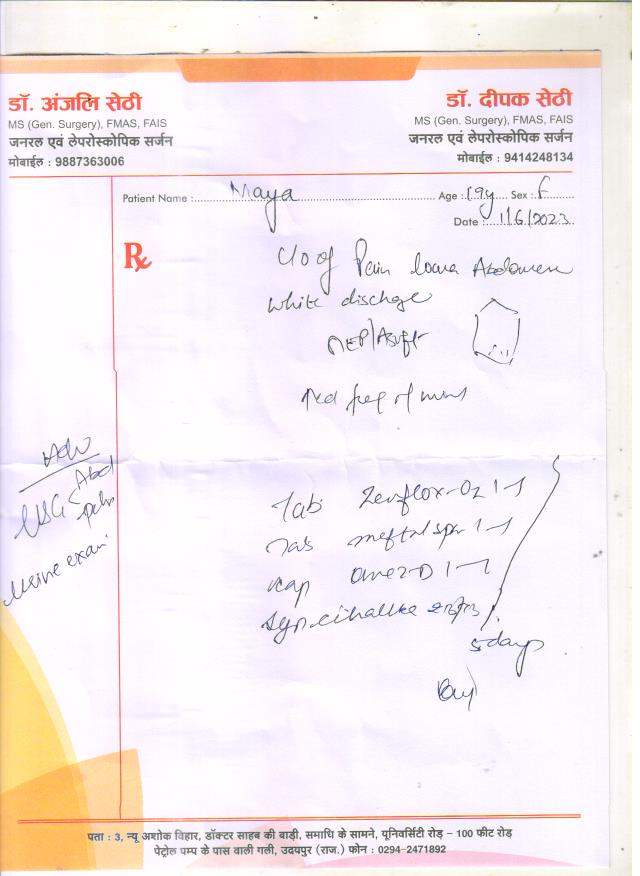 डॉ. अंजलि सेठी
MS (Gen. Surgery), FMAS, FAIS
जनरल एवं लेपरोस्कोपिक सर्जन
मोबाईल : 9887363006
डॉ. दीपक सेठी
MS (Gen. Surgery), FMAS, FAIS
जनरल एवं लेपरोस्कोपिक सर्जन
मोबाईल : 9414248134
Patient Name : Maya Age : 19y Sex : F
Date : 1/6/2023
Rx
C/o of Pain lower Abdomen
white discharge
Adv
USG Abd
pelvis
urine exam
Tab Zenflox-OZ 1-1
Tab meftal spas 1-1
cap Omez-D 1-1
Syp
5 days
पता : 3, न्यू अशोक विहार, डॉक्टर साहब की बाड़ी, समाधि के सामने, यूनिवर्सिटी रोड़ – 100 फीट रोड़
पेट्रोल पम्प के पास वाली गली, उदयपुर (राज.) फोन : 0294-2471892